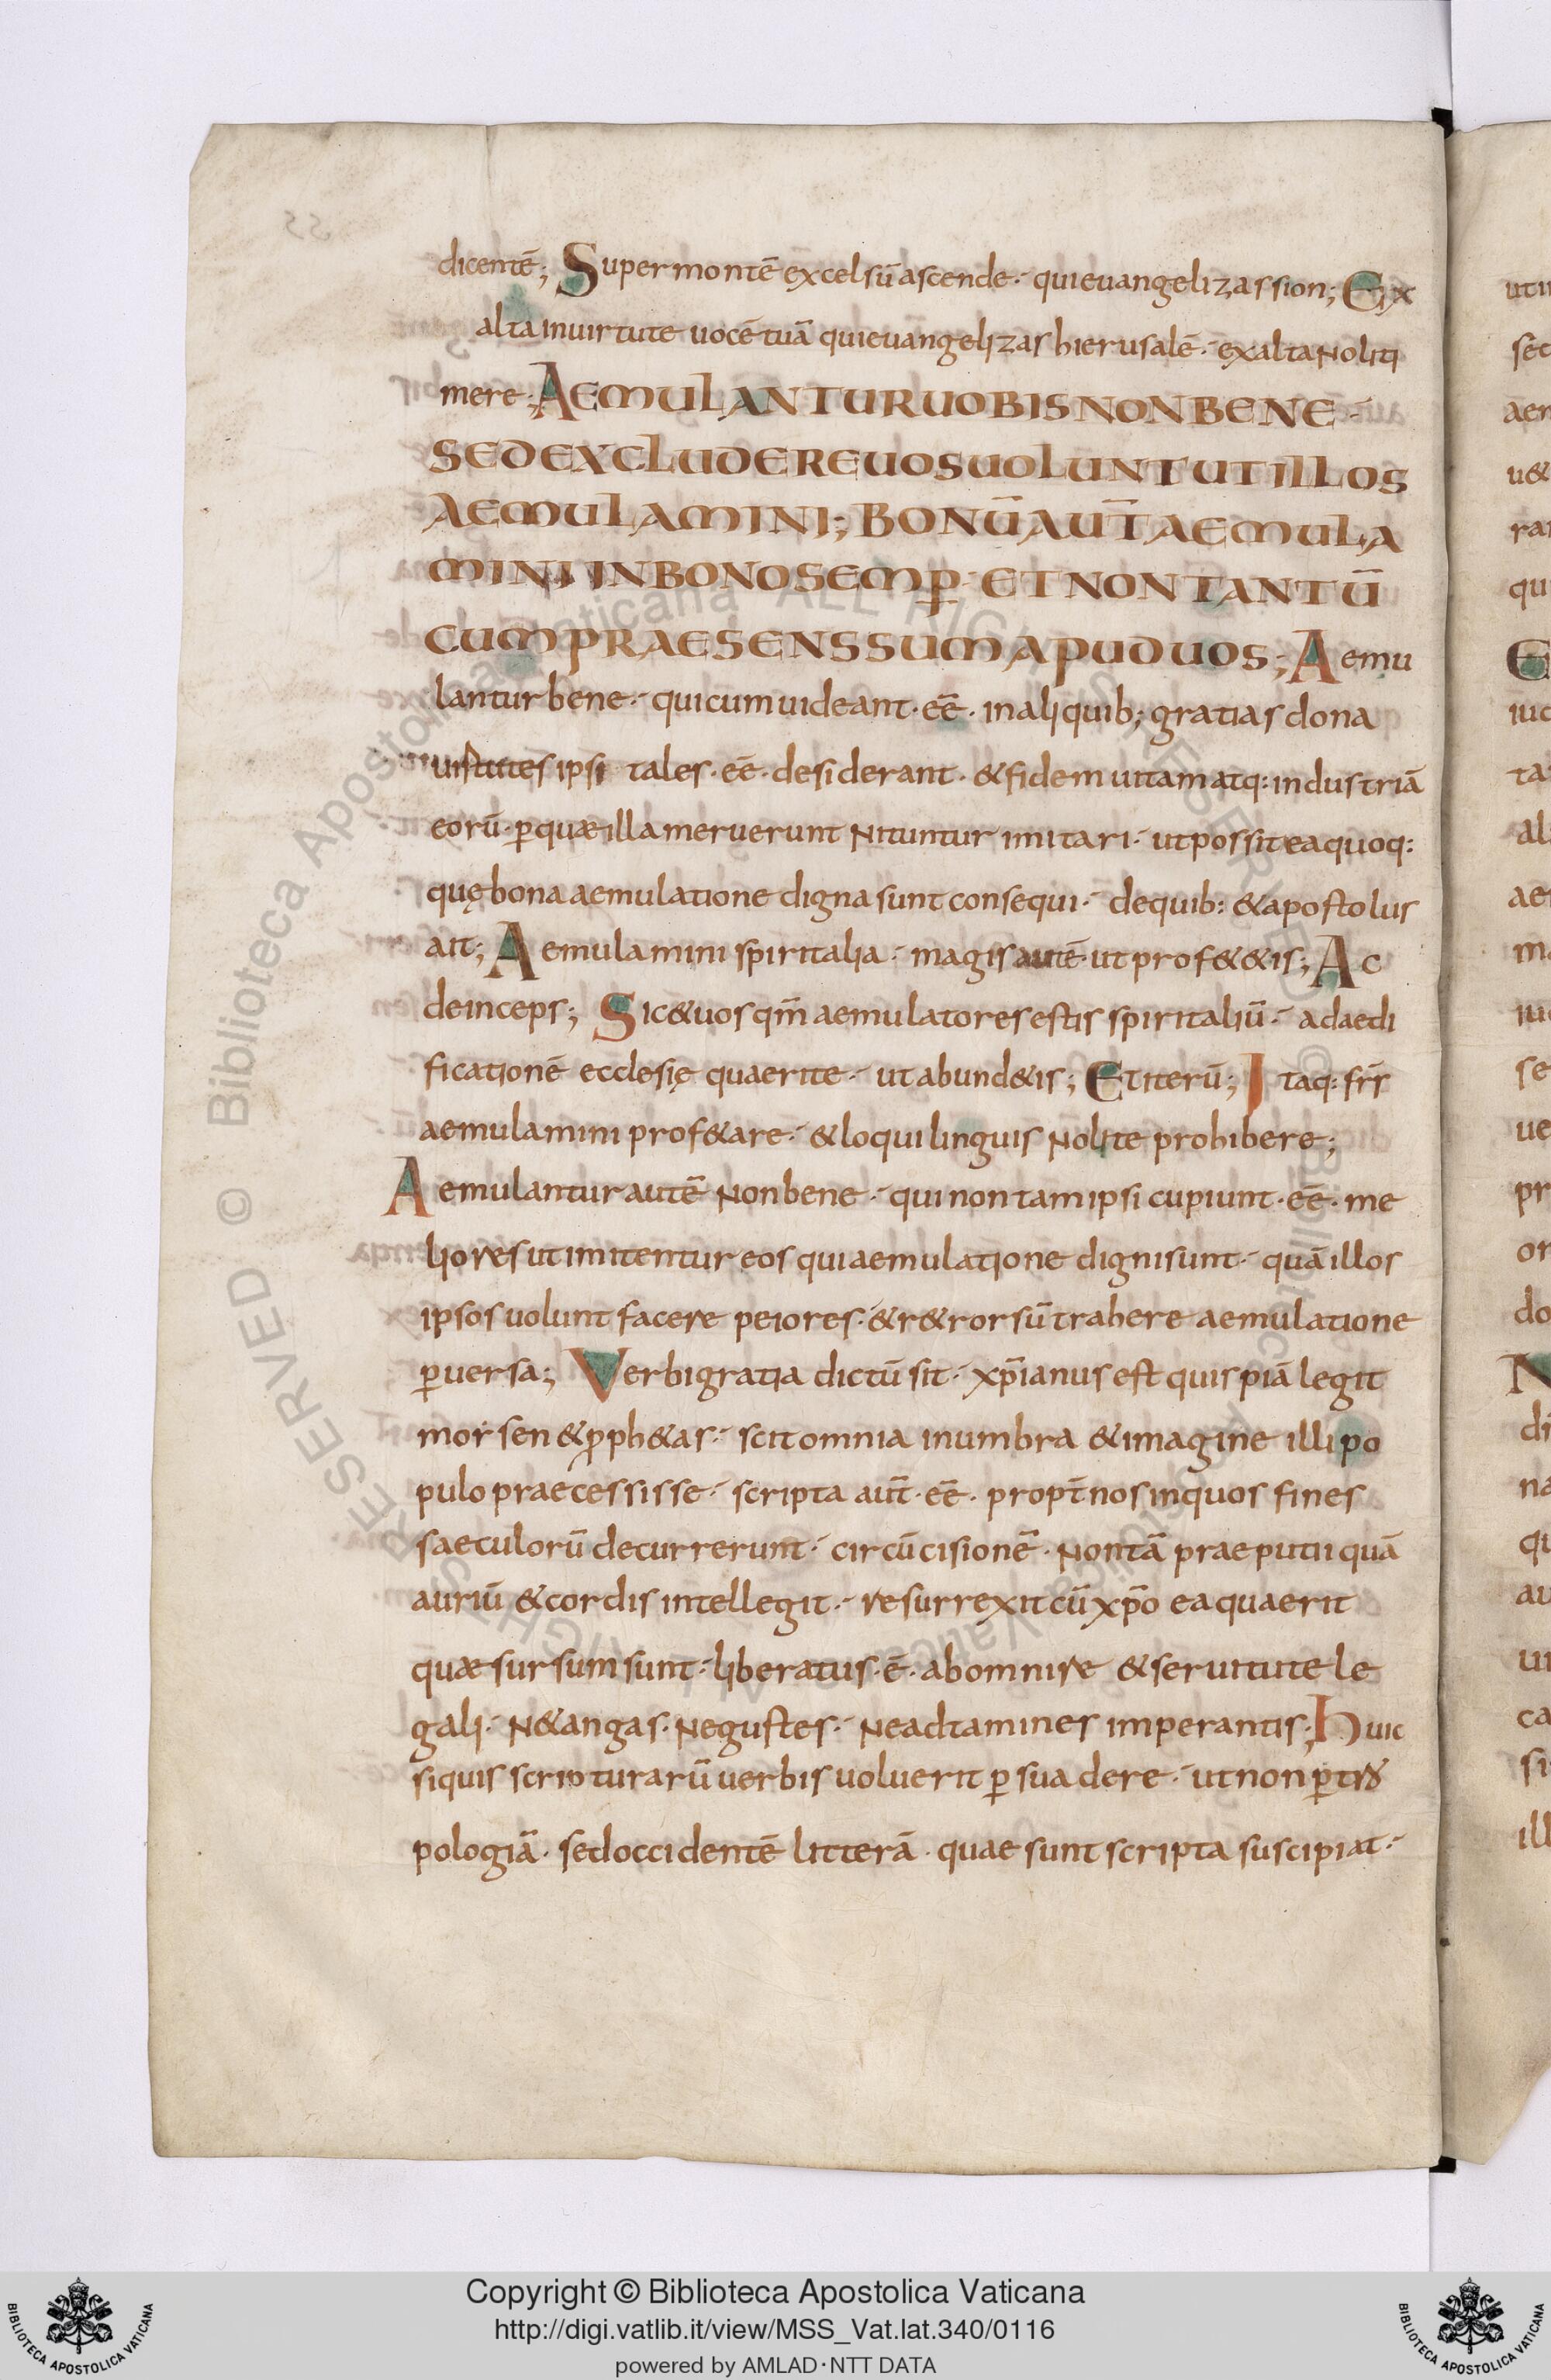 dicentē; Super montē excelsū ascende · qui euangelizas sion; Ex
alta in uirtute uocē tuā qui euangelizas hierusalē · exalta noliti
mere · AEMULANTUR UOBIS NON BENE ·
SED EXCLUDERE UOS UOLUNT UT ILLOS
AEMULAMINI; BONŪ AUT̄ AEMULA
MINI IN BONO SEMP̱ · ET NON TANTŪ
CUM PRAESENS SUM APUD UOS; Aemu
lantur bene · qui cum uideant · eē · in aliquib; gratias dona
uirtutes ipsi tales · eē · desiderant · & fidem uitam atq: industriā
eorū · p̱ quæ illa meruerunt nituntur imitari · ut possit ea quoq:
quę bona aemulatione digna sunt consequi · de quib: & apostolus
ait; Aemulamini spiritalia · magis autē ut prof&&is; Ac
deinceps; Sic & uos qm̄ aemulatores estis spiritaliū · ad aedi
ficationē ecclesię quaerite · ut abund&is; Et iterū; Itaq: frr̄
aemulamini prof&are · & loqui linguis nolite prohibere;
Aemulantur autē non bene · qui non tam ipsi cupiunt · eē · me
liores ut imitentur eos qui aemulatione digni sunt · quā illos
ipsos uolunt facere peiores · & r&rorsū trahere aemulatione
p̱uersa; Verbi gratia dictū sit · xp̄ianus est quispiā legit
morsen & p̱ph&as · scit omnia in umbra & imagine illi po
pulo praecessisse · scripta aut̄ · eē · propt̄ nos in quos fines
saeculorū decurrerunt · circūcisionē · non tā praeputii quā
auriū & cordis intellegit · resurrexit cū xp̄o ea quaerit
quæ sursum sunt · liberatus · ē · ab omni re & seruitute le
gali · n&angas · ne gustes · ne adtamines imperantis; Huic
siquis scripturarū uerbis uoluerit p̱suadere · ut non p̱ tro
pologiā · sed occidentē litterā · quae sunt scripta suscipiat ·
Copyright © Biblioteca Apostolica Vaticana
http://digi.vatlib.it/view/MSS_Vat.lat.340/0116
powered by AMLAD·NTT DATA